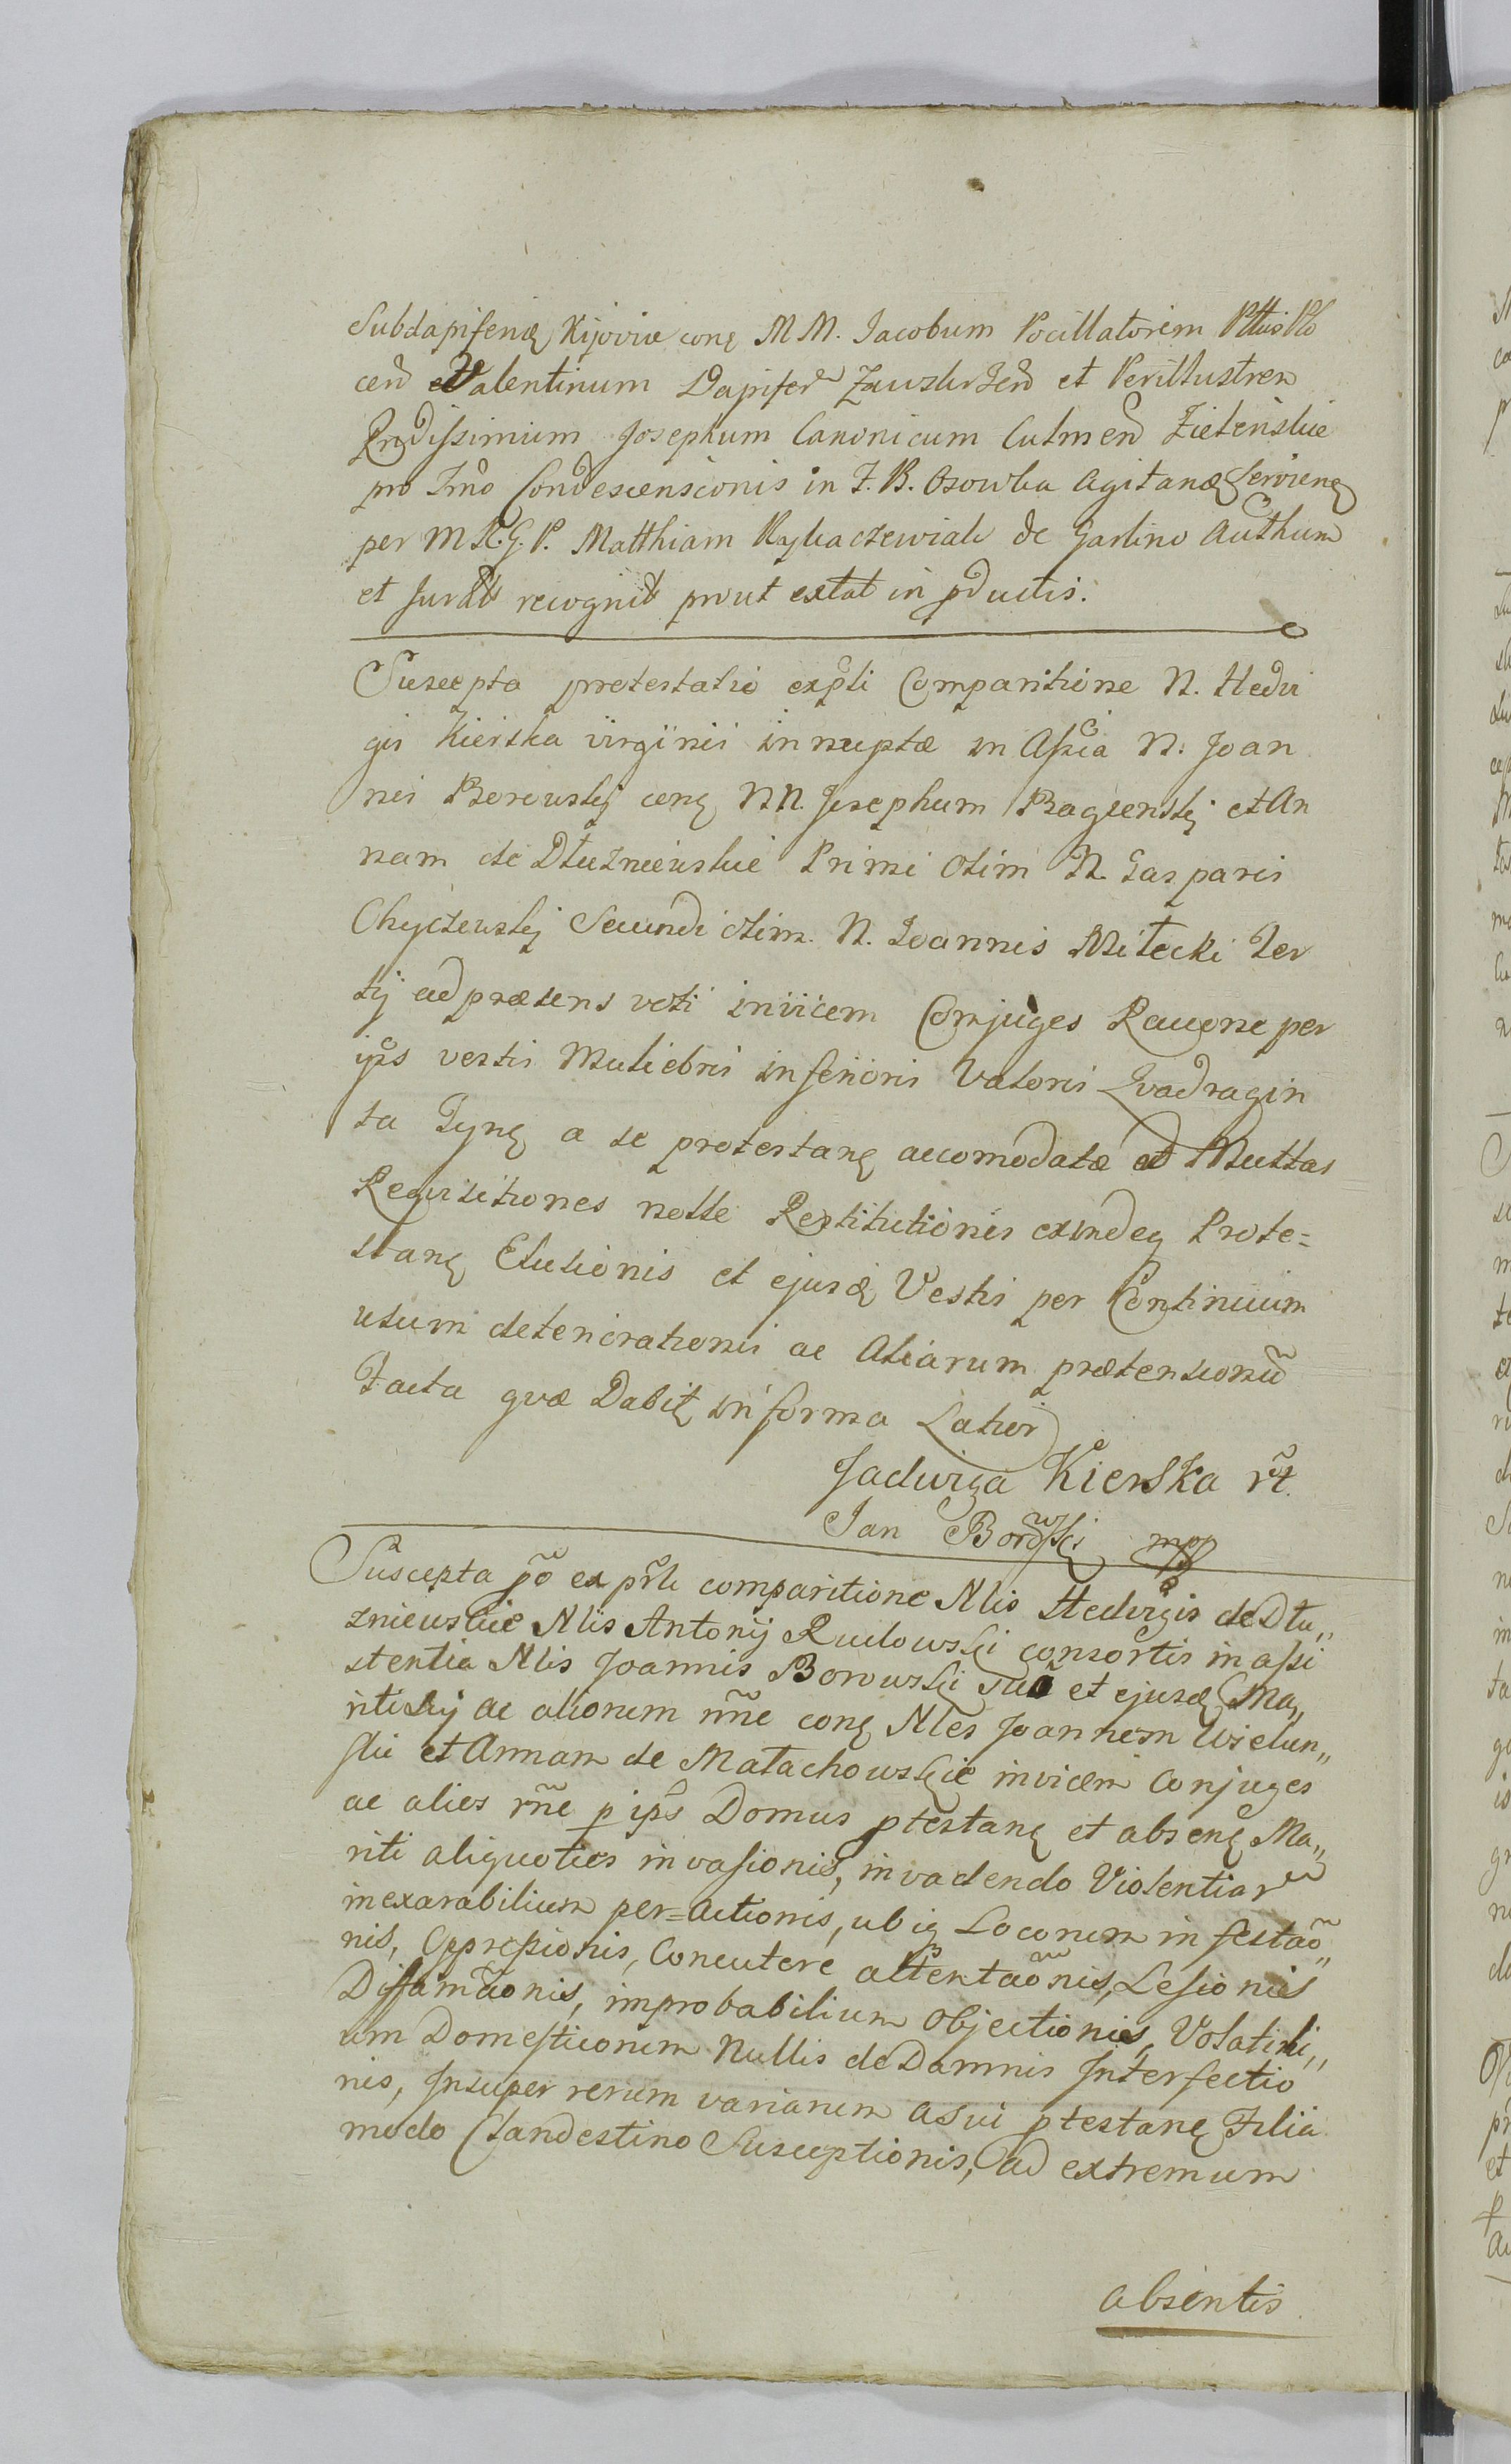 Subdapiferidę Kijoviæ conę M M. Jacobum Pocillatorem Pttus Plo
ceñ et Valentinum Dapifer Zawskrzeñ et Perillustrem
Rndissimum Josephum Canonicum Culmeñ Zielenskie
pro Trno Condescensionis in F. B. Osowka Agitandę Servienę
per M R. G. P. Matthiam Rybaczewiak de Garlino Authum
et Jurat recognit prout extat in pductis.
Suscepta protestatio expli Comparitione N. Hedvi
gis Kierska virginis innuptæ in Assia N. Joan
nis Borowskij conę NN. Josephum Bagienskij et An
nam de Dłuzniewskie Primi olim N. Gasparis
Chyczewskij Secundi olim N. Joannis Miłecki Ter
tij ad præsens voti invicem Conjuges Raone per
ipos vestis Muliebris inferioris Valoris Qvadragin
ta Tynę a se protestanę accomodatæ ad Multas
Reqvisitiones nolle Restitutionis exindeq Prote=
stanę Elusionis et ejusdę Vestis per Continuum
usum deteriorationis ac Aliarum prætensionũ
Facta qvæ Dabitę in forma Latior
Jadwiga Kierska rt.
Jan Borowski mpp
Suscepta po ex prli comparitione Nlis Hedvigis de Dłu„
zniewskie Nlis Antonij Rudowski consortis in assi
stentia Nlis Joannis Borowski suo et ejusdę Ma„
ritalij ac aliorum nñe conę Nles Joannem Wielun„
skie et Annam de Małachowskie invicem Conjuges
ac alies rñe p ipõs Domus ptestanę et absenę Ma„
riti aliquoties invasionis, invadendo Violentiar
inexarabilium per=actionis, ubiq Locorum infestaõ„
nis, Oppressionis, Concutere attentaõnis, Lesionis
Diffamaõnis, improbabilium Objectionis, Volatili„
um Domesticorum Nullis de Damnis Interfectio
nis, Insuper rerum variarum a sui ptestanę Filia
modo Clandestino Susceptionis, ad extremum
absentis